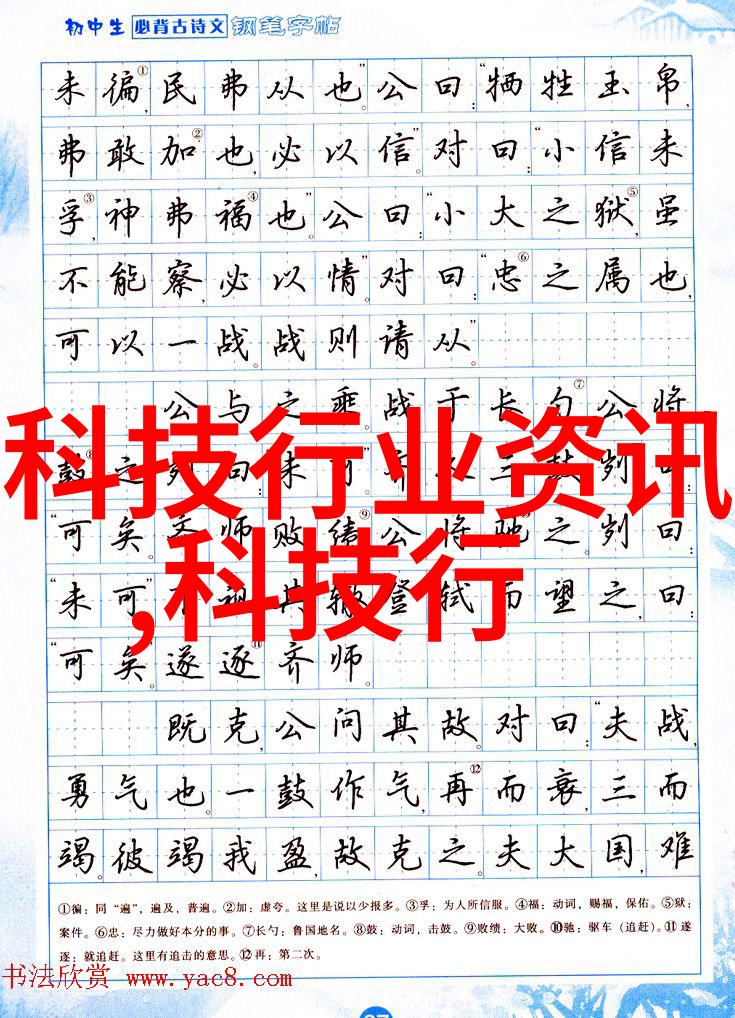 初中生 必背古诗文 钢笔字帖
未徧①,民弗从也。”公曰:“牺牲玉帛,
弗敢加②也,必以信。”对曰:“小信未
孚③,神弗福④也。”公曰:“小大之狱⑤,虽
不能察,必以情。”对曰:“忠⑥之属也,
可以一战。战则请从。”
公与之乘。战于长勺⑦。公将
鼓⑧之。刿曰:“未可。”齐人三鼓。刿曰:
科技行业资讯
“可矣。”齐师败绩⑨。公将驰之。刿曰:
,科技行
“未可。”下视其辙,登轼而望之,曰:
“可矣。”遂逐⑪齐师。
既克,公问其故。对曰:“夫战,
勇气也。一鼓作气,再⑫而衰,三而
竭。彼竭我盈,故克之。夫大国,难
①徧:同“遍”,遍及,普遍。②加:虚夸。这里是说以少报多。③孚:为人所信服。④福:动词,赐福,保佑。⑤狱:
案件。⑥忠:尽力做好本分的事。⑦长勺:鲁国地名。⑧鼓:动词,击鼓。⑨败绩:大败。⑩驰:驱车(追赶)。⑪遂
逐:就追赶。这里有追击的意思。⑫再:第二次。
书法欣赏 www.yac8.com